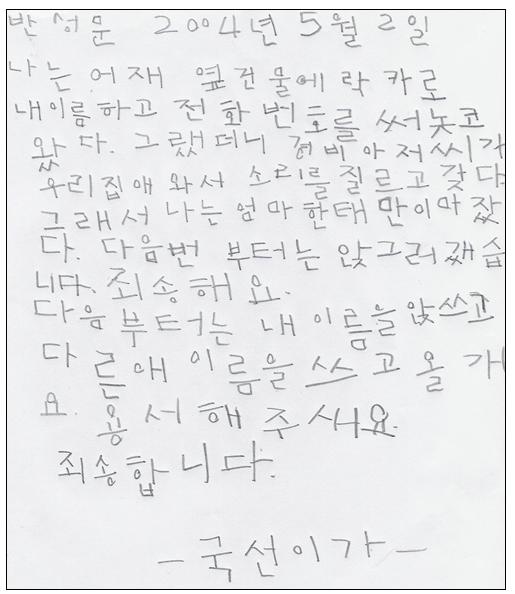 반성문 2004년 5월 2일
나는 어재 옆건물에 락카로
내이름하고 전화번호를 써놋코
왔다. 그랬더니 경비아저씨가
우리집애 와서 소리를 질르고 갖다
그래서 나는 엄마한태 만이마잤
다. 다음번 부터는 않그러갰습
니다. 죄송해요.
다음부터는 내이름을 않쓰고
다른애이름을 쓰고올가
요. 용서해주시요.
죄송합니다.
- 국선이가 -